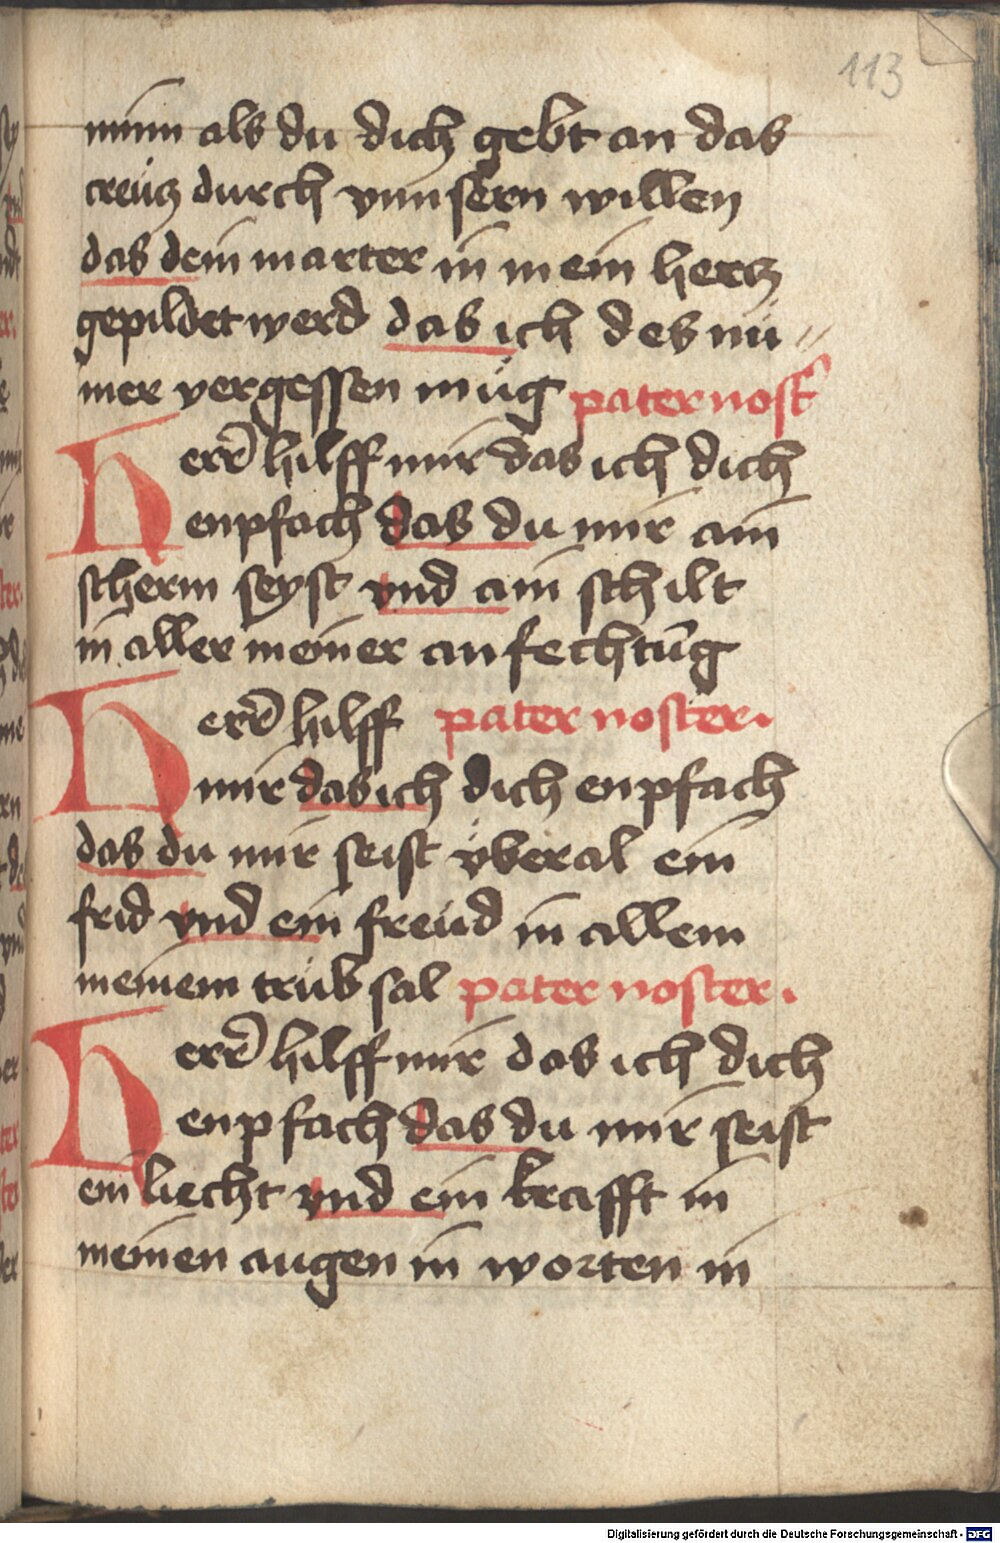 113
minn als du dich gebt an das
creücz durch vnnsern willen
das dein marter in mein hercz
gepildet werd das ich des nü〃
mer vergessen müg pater nost̄
Herr̄ hilff mir das ich dich
enpfach das du mir ain
scherm seyst vnd ain schilt
in aller meiner anfechtūg
Herr̄ hilff pater noster.
mir das ich dich enpfach
das du mir seist v̈beral ein
frid vnd ein freüd in allem
meinem trübsal pater noster.
Herr̄ hilff mir das ich dich
enpfach das du mir seist
ein liecht vnd ein krafft in
meinen augen in worten in
Digitalisierung gefördert durch die Deutsche Forschungsgemeinschaft - DFG